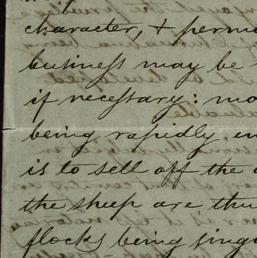 character, & perm
business may be
if necessary: mo
being rapidly in
is to sell off the
the sheep are thu
flocks being sing